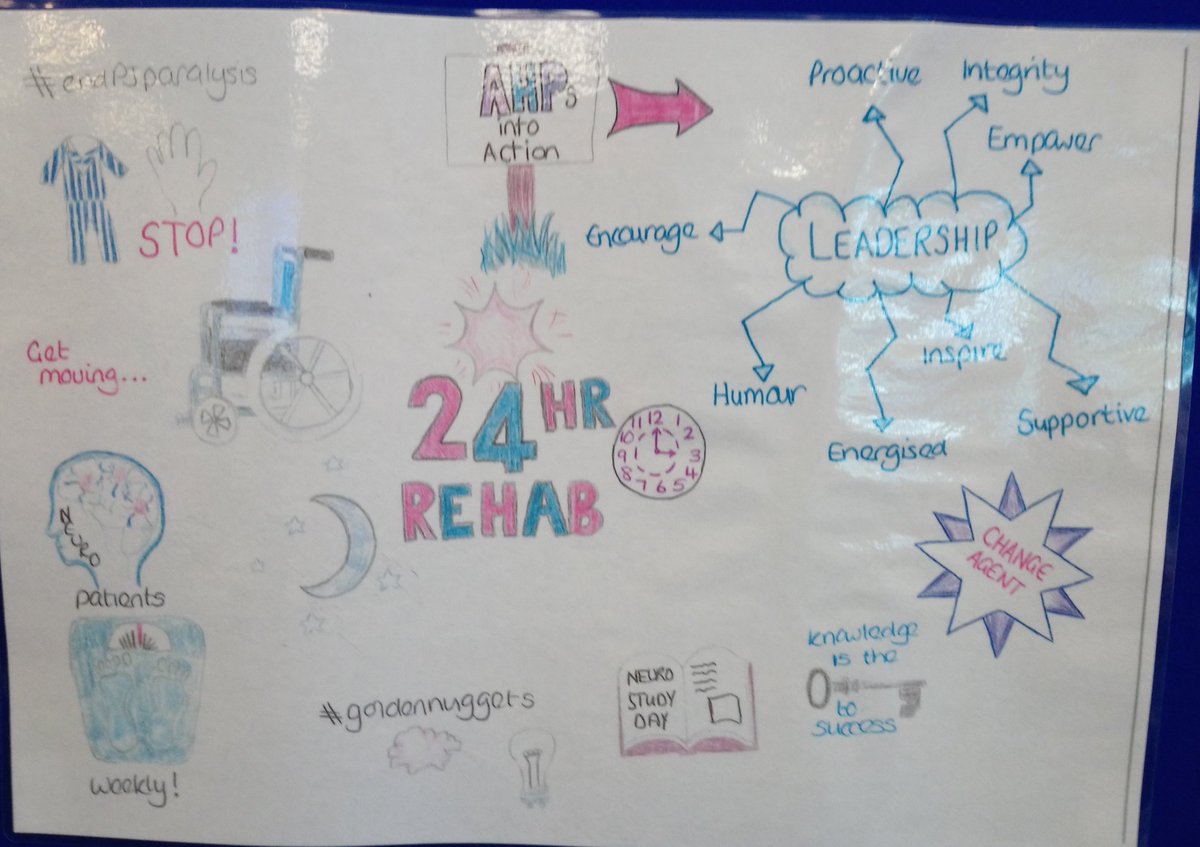 #endPJparalysis
STOP!
Get
moving...
NEURO
patients
weekly!
AHPs
into
Action
24 HR
REHAB
11 12 1
10 2
9 3
8 4
7 6 5
#goldennuggets
Proactive
Integrity
Empower
Encourage
LEADERSHIP
Inspire
Humour
Supportive
Energised
CHANGE
AGENT
NEURO
STUDY
DAY
knowledge
is the
to
success